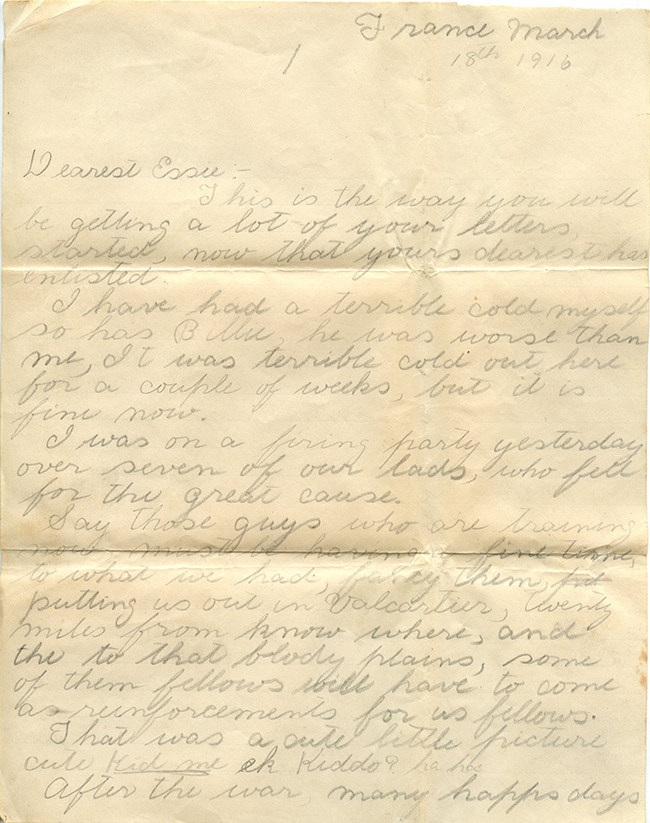 France March
18th 1916
1
Dearest Essie:-
This is the way you will
be getting a lot of your letters,
started, now that yours dearest has
enlisted.
I have had a terrible cold myself
so has Billie, he was worse than
me, It was terrible cold out here
for a couple of weeks, but it is
fine now.
I was on a firing party yesterday
over seven of our lads, who fell
for the great cause.
Say those guys who are training
now, must be having a fine time,
to what we had, fancy them, put
putting us out in Valcartier, twenty
miles from know where, and
the to that bloody plains, some
of them fellows will have to come
as reinforcements for us fellows.
That was a cute little picture
cute Kid me eh Kiddo? ha ha
After the war, many happs days